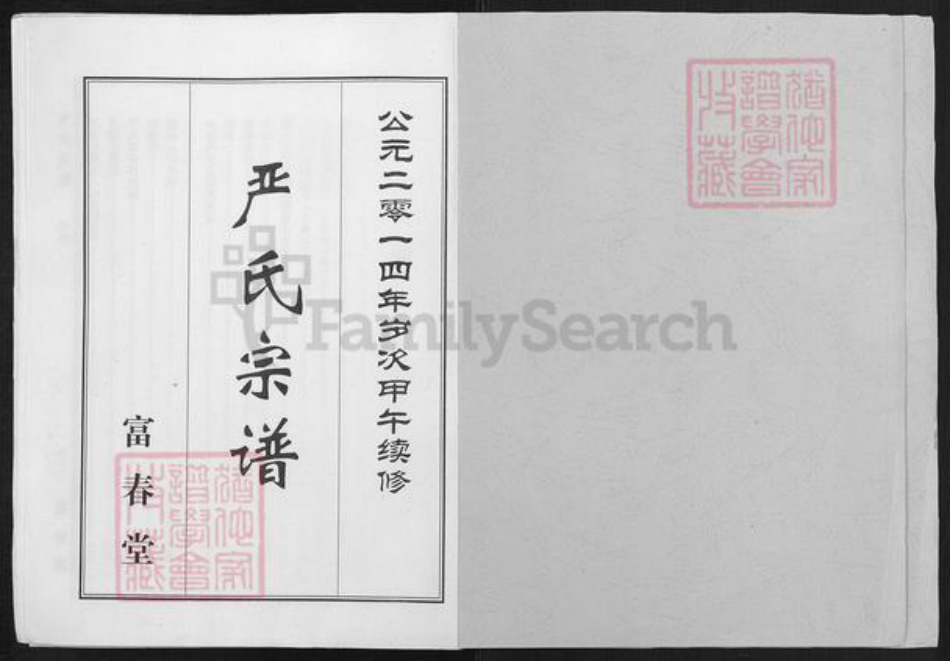 公元二零一四年岁次甲午续修
严氏宗谱
富春堂
猶他家
譜學會
收藏
FamilySearch